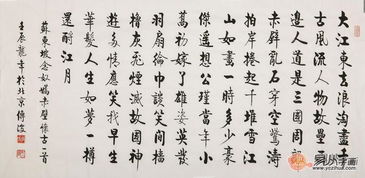 大江東去浪淘盡千
古風流人物故壘西
邊人道是三國周郎
赤壁亂石穿空驚濤
拍岸捲起千堆雪江
山如畫一時多少豪
傑遙想公瑾當年小
喬初嫁了雄姿英發
羽扇綸巾談笑間檣
櫓灰飛煙滅故國神
遊多情應笑我早生
華髮人生如夢一樽
還酹江月
蘇東坡念奴嬌赤壁懷古一首
壬辰龍年於北京傅浚
www.yczihua.com